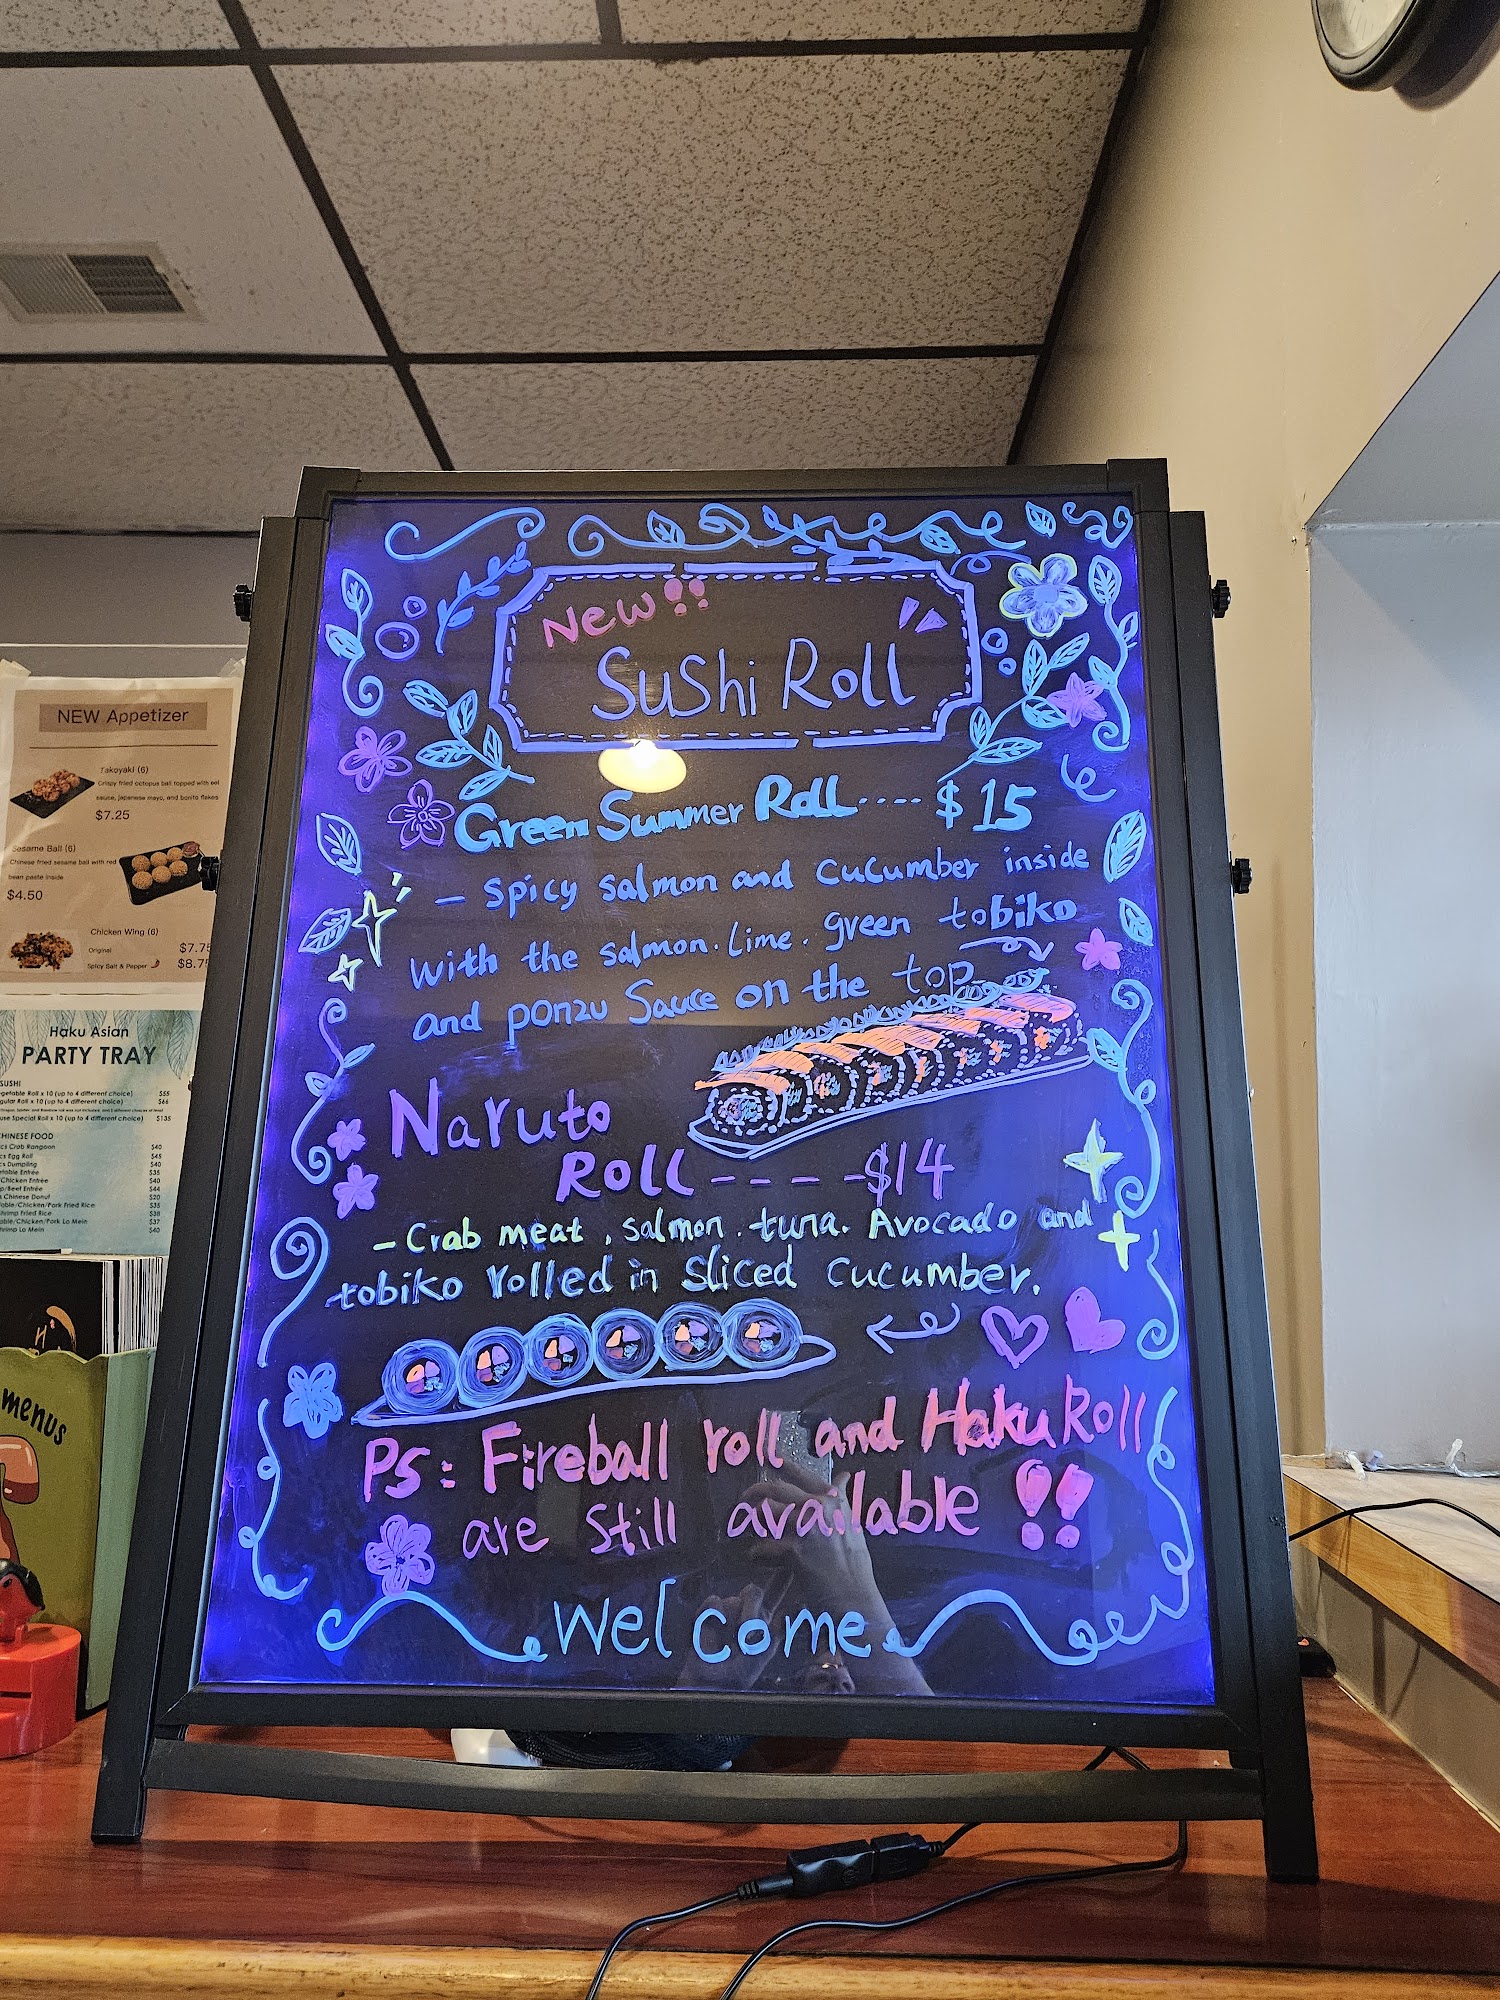 New!!
Sushi Roll
Green Summer Roll---- $15
- spicy salmon and cucumber inside
with the salmon. lime. green tobiko
and ponzu sauce on the top
Naruto
Roll ---- $14
- Crab meat, salmon. tuna. Avocado and
tobiko rolled in sliced cucumber.
PS: Fireball roll and Haku Roll
are still available !!
welcome
NEW Appetizer
Takoyaki (6)
Crispy fried octopus ball topped with eel
sauce, japanese mayo, and bonito flakes
$7.25
Sesame Ball (6)
Chinese fried sesame ball with red
bean paste inside
$4.50
Chicken Wing (6)
Original $7.75
Spicy Salt & Pepper $8.7
Haku Asian
PARTY TRAY
SUSHI
getable Roll x 10 (up to 4 different choice) $55
gular Roll x 10 (up to 4 different choice) $66
use Special Roll x 10 (up to 4 different choice) $135
CHINESE FOOD
cs Crab Rangoon $40
cs Egg Roll $45
cs Dumpling $40
table Entrée $35
/Chicken Entrée $40
p/Beef Entrée $44
s Chinese Donut $20
able/Chicken/Pork Fried Rice $35
hrimp Fried Rice $38
able/Chicken/Pork Lo Mein $37
hrimp Lo Mein $40
menus